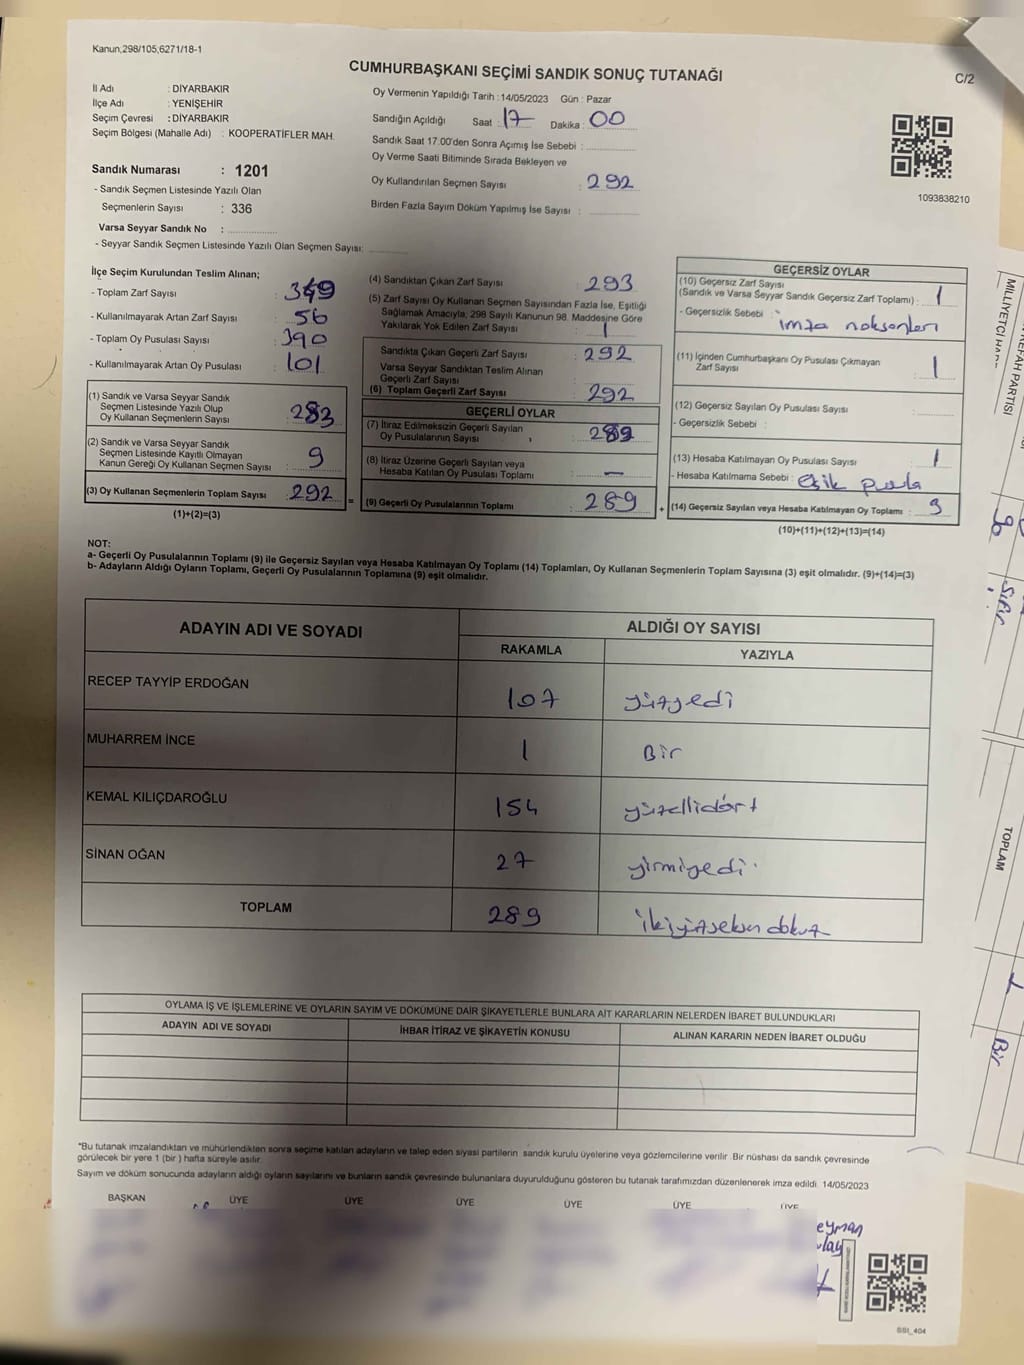 Kanun,298/105,6271/18-1
CUMHURBAŞKANI SEÇİMİ SANDIK SONUÇ TUTANAĞI
C/2
İl Adı : DİYARBAKIR
İlçe Adı : YENİŞEHİR
Seçim Çevresi : DİYARBAKIR
Seçim Bölgesi (Mahalle Adı) : KOOPERATİFLER MAH.
Oy Vermenin Yapıldığı Tarih : 14/05/2023 Gün : Pazar
Sandığın Açıldığı Saat : 17 Dakika : 00
Sandık Saat 17.00'den Sonra Açımış İse Sebebi :
Oy Verme Saati Bitiminde Sırada Bekleyen ve
Oy Kullandırılan Seçmen Sayısı : 292
Birden Fazla Sayım Döküm Yapılmış İse Sayısı :
1093838210
Sandık Numarası : 1201
- Sandık Seçmen Listesinde Yazılı Olan
Seçmenlerin Sayısı : 336
Varsa Seyyar Sandık No :
- Seyyar Sandık Seçmen Listesinde Yazılı Olan Seçmen Sayısı:
İlçe Seçim Kurulundan Teslim Alınan;
- Toplam Zarf Sayısı : 349
- Kullanılmayarak Artan Zarf Sayısı : 56
- Toplam Oy Pusulası Sayısı : 390
- Kullanılmayarak Artan Oy Pusulası : 101
(1) Sandık ve Varsa Seyyar Sandık
Seçmen Listesinde Yazılı Olup
Oy Kullanan Seçmenlerin Sayısı : 283
(2) Sandık ve Varsa Seyyar Sandık
Seçmen Listesinde Kayıtlı Olmayan
Kanun Gereği Oy Kullanan Seçmen Sayısı : 9
(3) Oy Kullanan Seçmenlerin Toplam Sayısı : 292 =
(1)+(2)=(3)
(4) Sandıktan Çıkan Zarf Sayısı : 293
(5) Zarf Sayısı Oy Kullanan Seçmen Sayısından Fazla İse, Eşitliği
Sağlamak Amacıyla; 298 Sayılı Kanunun 98. Maddesine Göre
Yakılarak Yok Edilen Zarf Sayısı : 1
Sandıkta Çıkan Geçerli Zarf Sayısı : 292
Varsa Seyyar Sandıktan Teslim Alınan
Geçerli Zarf Sayısı
(6) Toplam Geçerli Zarf Sayısı : 292
GEÇERLİ OYLAR
(7) İtiraz Edilmeksizin Geçerli Sayılan
Oy Pusulalarının Sayısı : 289
(8) İtiraz Üzerine Geçerli Sayılan veya
Hesaba Katılan Oy Pusulası Toplamı : —
(9) Geçerli Oy Pusulalarının Toplamı : 289 +
GEÇERSİZ OYLAR
(10) Geçersiz Zarf Sayısı
(Sandık ve Varsa Seyyar Sandık Geçersiz Zarf Toplamı) : 1
- Geçersizlik Sebebi : imza noksanları
(11) İçinden Cumhurbaşkanı Oy Pusulası Çıkmayan
Zarf Sayısı : 1
(12) Geçersiz Sayılan Oy Pusulası Sayısı :
- Geçersizlik Sebebi :
(13) Hesaba Katılmayan Oy Pusulası Sayısı : 1
- Hesaba Katılmama Sebebi :
(14) Geçersiz Sayılan veya Hesaba Katılmayan Oy Toplamı : 3
(10)+(11)+(12)+(13)=(14)
NOT:
a- Geçerli Oy Pusulalarının Toplamı (9) ile Geçersiz Sayılan veya Hesaba Katılmayan Oy Toplamı (14) Toplamları, Oy Kullanan Seçmenlerin Toplam Sayısına (3) eşit olmalıdır. (9)+(14)=(3)
b- Adayların Aldığı Oyların Toplamı, Geçerli Oy Pusulalarının Toplamına (9) eşit olmalıdır.
ADAYIN ADI VE SOYADI
ALDIĞI OY SAYISI
RAKAMLA YAZIYLA
RECEP TAYYİP ERDOĞAN 107 yüzyedi
MUHARREM İNCE 1 Bir
KEMAL KILIÇDAROĞLU 154 yüzellidört
SİNAN OĞAN 27 yirmiyedi
TOPLAM 289 ikiyüzseksendokuz
OYLAMA İŞ VE İŞLEMLERİNE VE OYLARIN SAYIM VE DÖKÜMÜNE DAİR ŞİKAYETLERLE BUNLARA AİT KARARLARIN NELERDEN İBARET BULUNDUKLARI
ADAYIN ADI VE SOYADI İHBAR İTİRAZ VE ŞİKAYETİN KONUSU ALINAN KARARIN NEDEN İBARET OLDUĞU
*Bu tutanak imzalandıktan ve mühürlendikten sonra seçime katılan adayların ve talep eden siyasi partilerin sandık kurulu üyelerine veya gözlemcilerine verilir .Bir nüshası da sandık çevresinde
görülecek bir yere 1 (bir ) hafta süreyle asılır.
Sayım ve döküm sonucunda adayların aldığı oyların sayılarını ve bunların sandık çevresinde bulunanlara duyurulduğunu gösteren bu tutanak tarafımızdan düzenlenerek imza edildi. 14/05/2023
BAŞKAN ÜYE ÜYE ÜYE ÜYE ÜYE ÜYE
eyman
SSI_404
REFAH PARTİSİ
TOPLAM
Sıfır
1
Bir